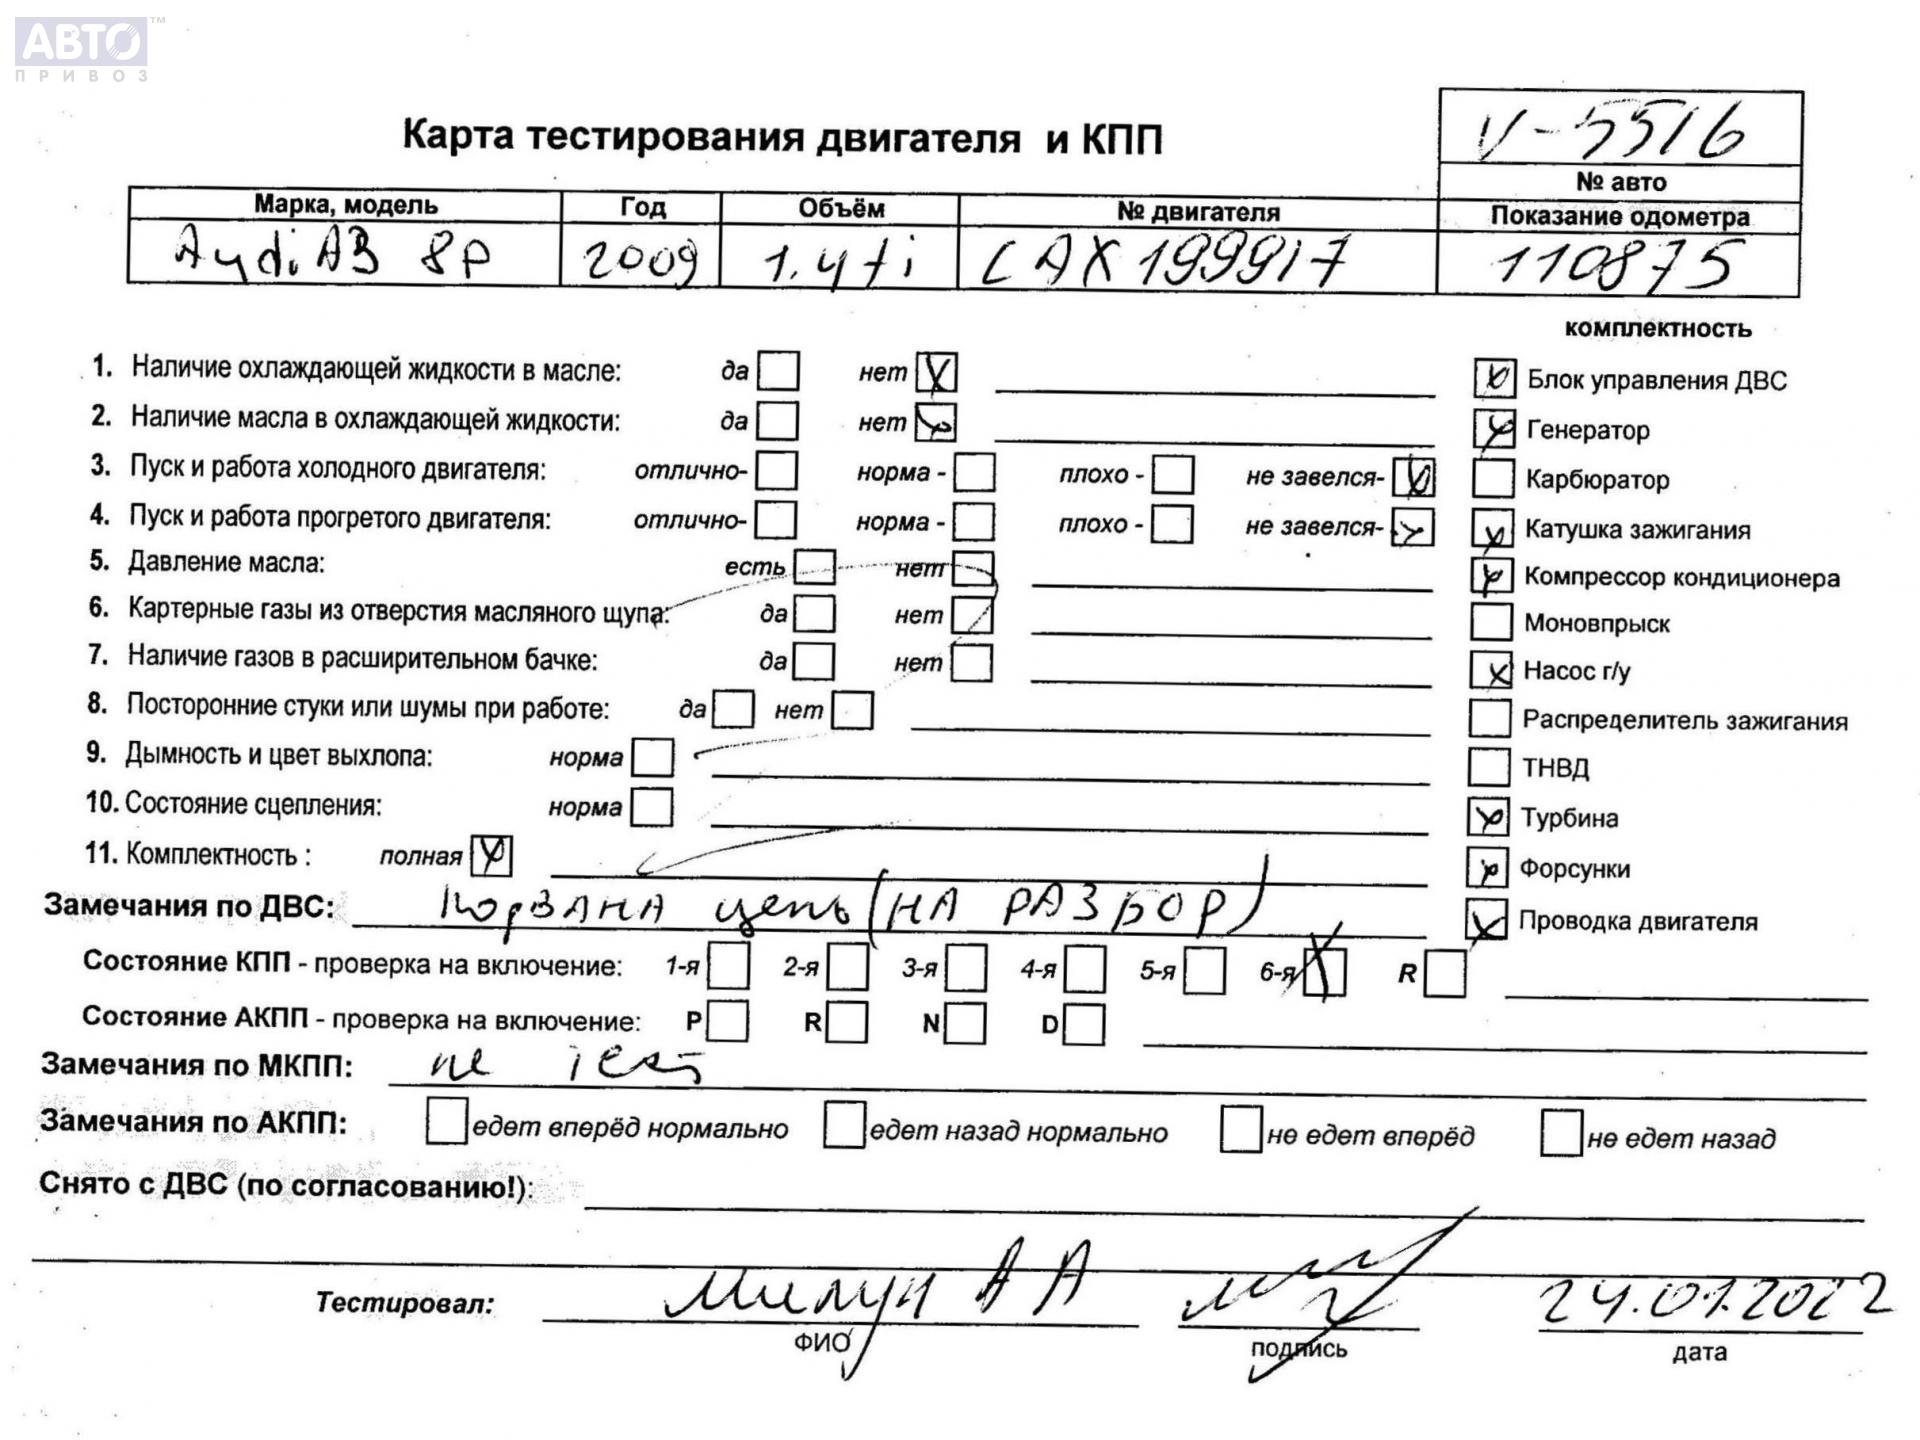 АВТО™
ПРИВОЗ
V-5516
Карта тестирования двигателя и КПП
№ авто
Марка, модель Год Объём № двигателя Показание одометра
Audi A3 8P 2009 1.4 Tfi CAX199917 110875
комплектность
1. Наличие охлаждающей жидкости в масле: да нет
Блок управления ДВС
2. Наличие масла в охлаждающей жидкости: да нет
Генератор
3. Пуск и работа холодного двигателя: отлично- норма - плохо - не завелся-
Карбюратор
4. Пуск и работа прогретого двигателя: отлично- норма - плохо - не завелся-
Катушка зажигания
5. Давление масла: есть нет
Компрессор кондиционера
6. Картерные газы из отверстия масляного щупа: да нет
Моновпрыск
7. Наличие газов в расширительном бачке: да нет
Насос г/у
8. Посторонние стуки или шумы при работе: да нет
Распределитель зажигания
9. Дымность и цвет выхлопа: норма
ТНВД
10. Состояние сцепления: норма
Турбина
11. Комплектность : полная
Форсунки
Замечания по ДВС: порвана цепь (НА РАЗБОР)
Проводка двигателя
Состояние КПП - проверка на включение: 1-я 2-я 3-я 4-я 5-я 6-я R
Состояние АКПП - проверка на включение: P R N D
Замечания по МКПП: не тест
Замечания по АКПП: едет вперёд нормально едет назад нормально не едет вперёд не едет назад
Снято с ДВС (по согласованию!):
Тестировал: А А 24.01.2022
ФИО подпись дата